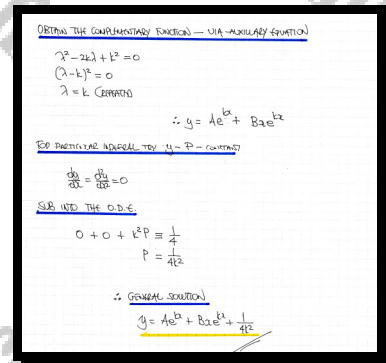 OBTAIN THE COMPLIMENTARY FUNCTION — VIA AUXILIARY EQUATION
λ² - 2kλ + k² = 0
(λ - k)² = 0
λ = k (REPEATED)
∴ y = Ae^{kx} + Bxe^{kx}
FOR PARTICULAR INTEGRAL TRY y = P = CONSTANT
dy/dx = d²y/dx² = 0
SUB INTO THE O.D.E.
0 + 0 + k²P ≡ 1/4
P = 1/4k²
∴ GENERAL SOLUTION
y = Ae^{kx} + Bxe^{kx} + 1/4k²